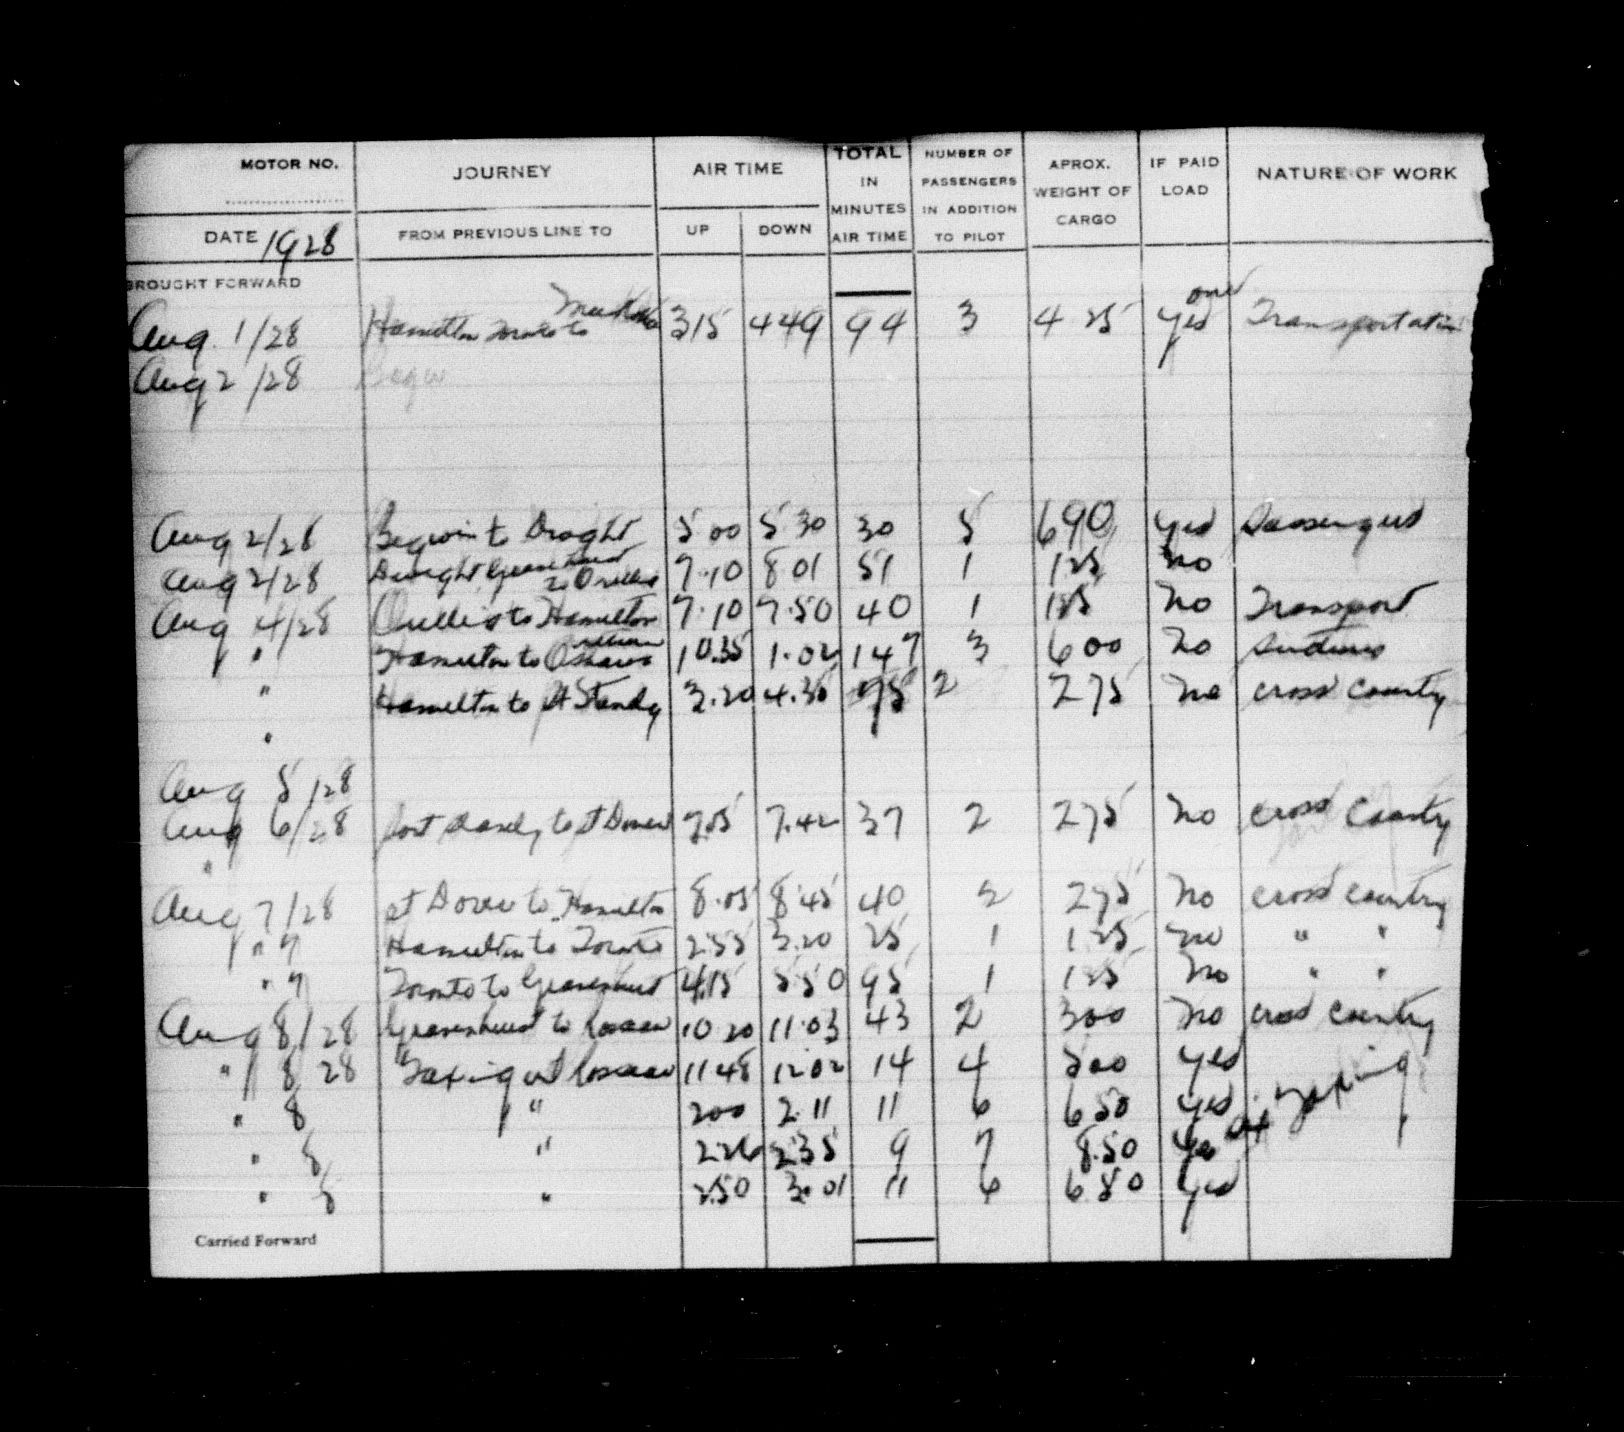 MOTOR NO. JOURNEY AIR TIME TOTAL IN MINUTES AIR TIME NUMBER OF PASSENGERS IN ADDITION TO PILOT APROX. WEIGHT OF CARGO IF PAID LOAD NATURE OF WORK
DATE 1928 FROM PREVIOUS LINE TO UP DOWN
BROUGHT FORWARD
Aug 1/28 Hamilton Toronto to Muskoka 315 449 94 3 425 yes one Transportation
Aug 2/28 Begw
Aug 2/28 Begwin to Dwight 5 00 5 30 30 5 690 yes Passengers
Aug 2/28 Dwight Gravenhurst to Orillia 7.10 8 01 51 1 125 no
Aug 4/28 Orillia to Hamilton 7.10 7.50 40 1 125 no Transport
" Hamilton to Oshawa return 10.35 1.02 147 3 600 no
" Hamilton to Pt Stanley 3.20 4.35 75 2 275 no cross county
"
Aug 5/28
Aug 6/28 Port Stanley to Pt Dover 7.05 7.42 37 2 275 no cross county
"
Aug 7/28 pt Dover to Hamilton 8.05 8.45 40 2 275 no cross country
" 7 Hamilton to Toronto 2.55 3.20 25 1 125 no " "
" 7 Toronto to Gravenhurst 4.15 5 50 95 1 125 no " "
Aug 8/28 Gravenhurst to Rosseau 10 20 11.03 43 2 300 no cross country
" 8 28 Taxing at Rosseau 11 48 12.02 14 4 500 yes
" 8 " 200 2.11 11 6 650 yes Taxing
" 8 " 2.26 2.35 9 7 8.50 yes
" 8 " 2.50 3.01 11 6 6 80 yes
Carried Forward